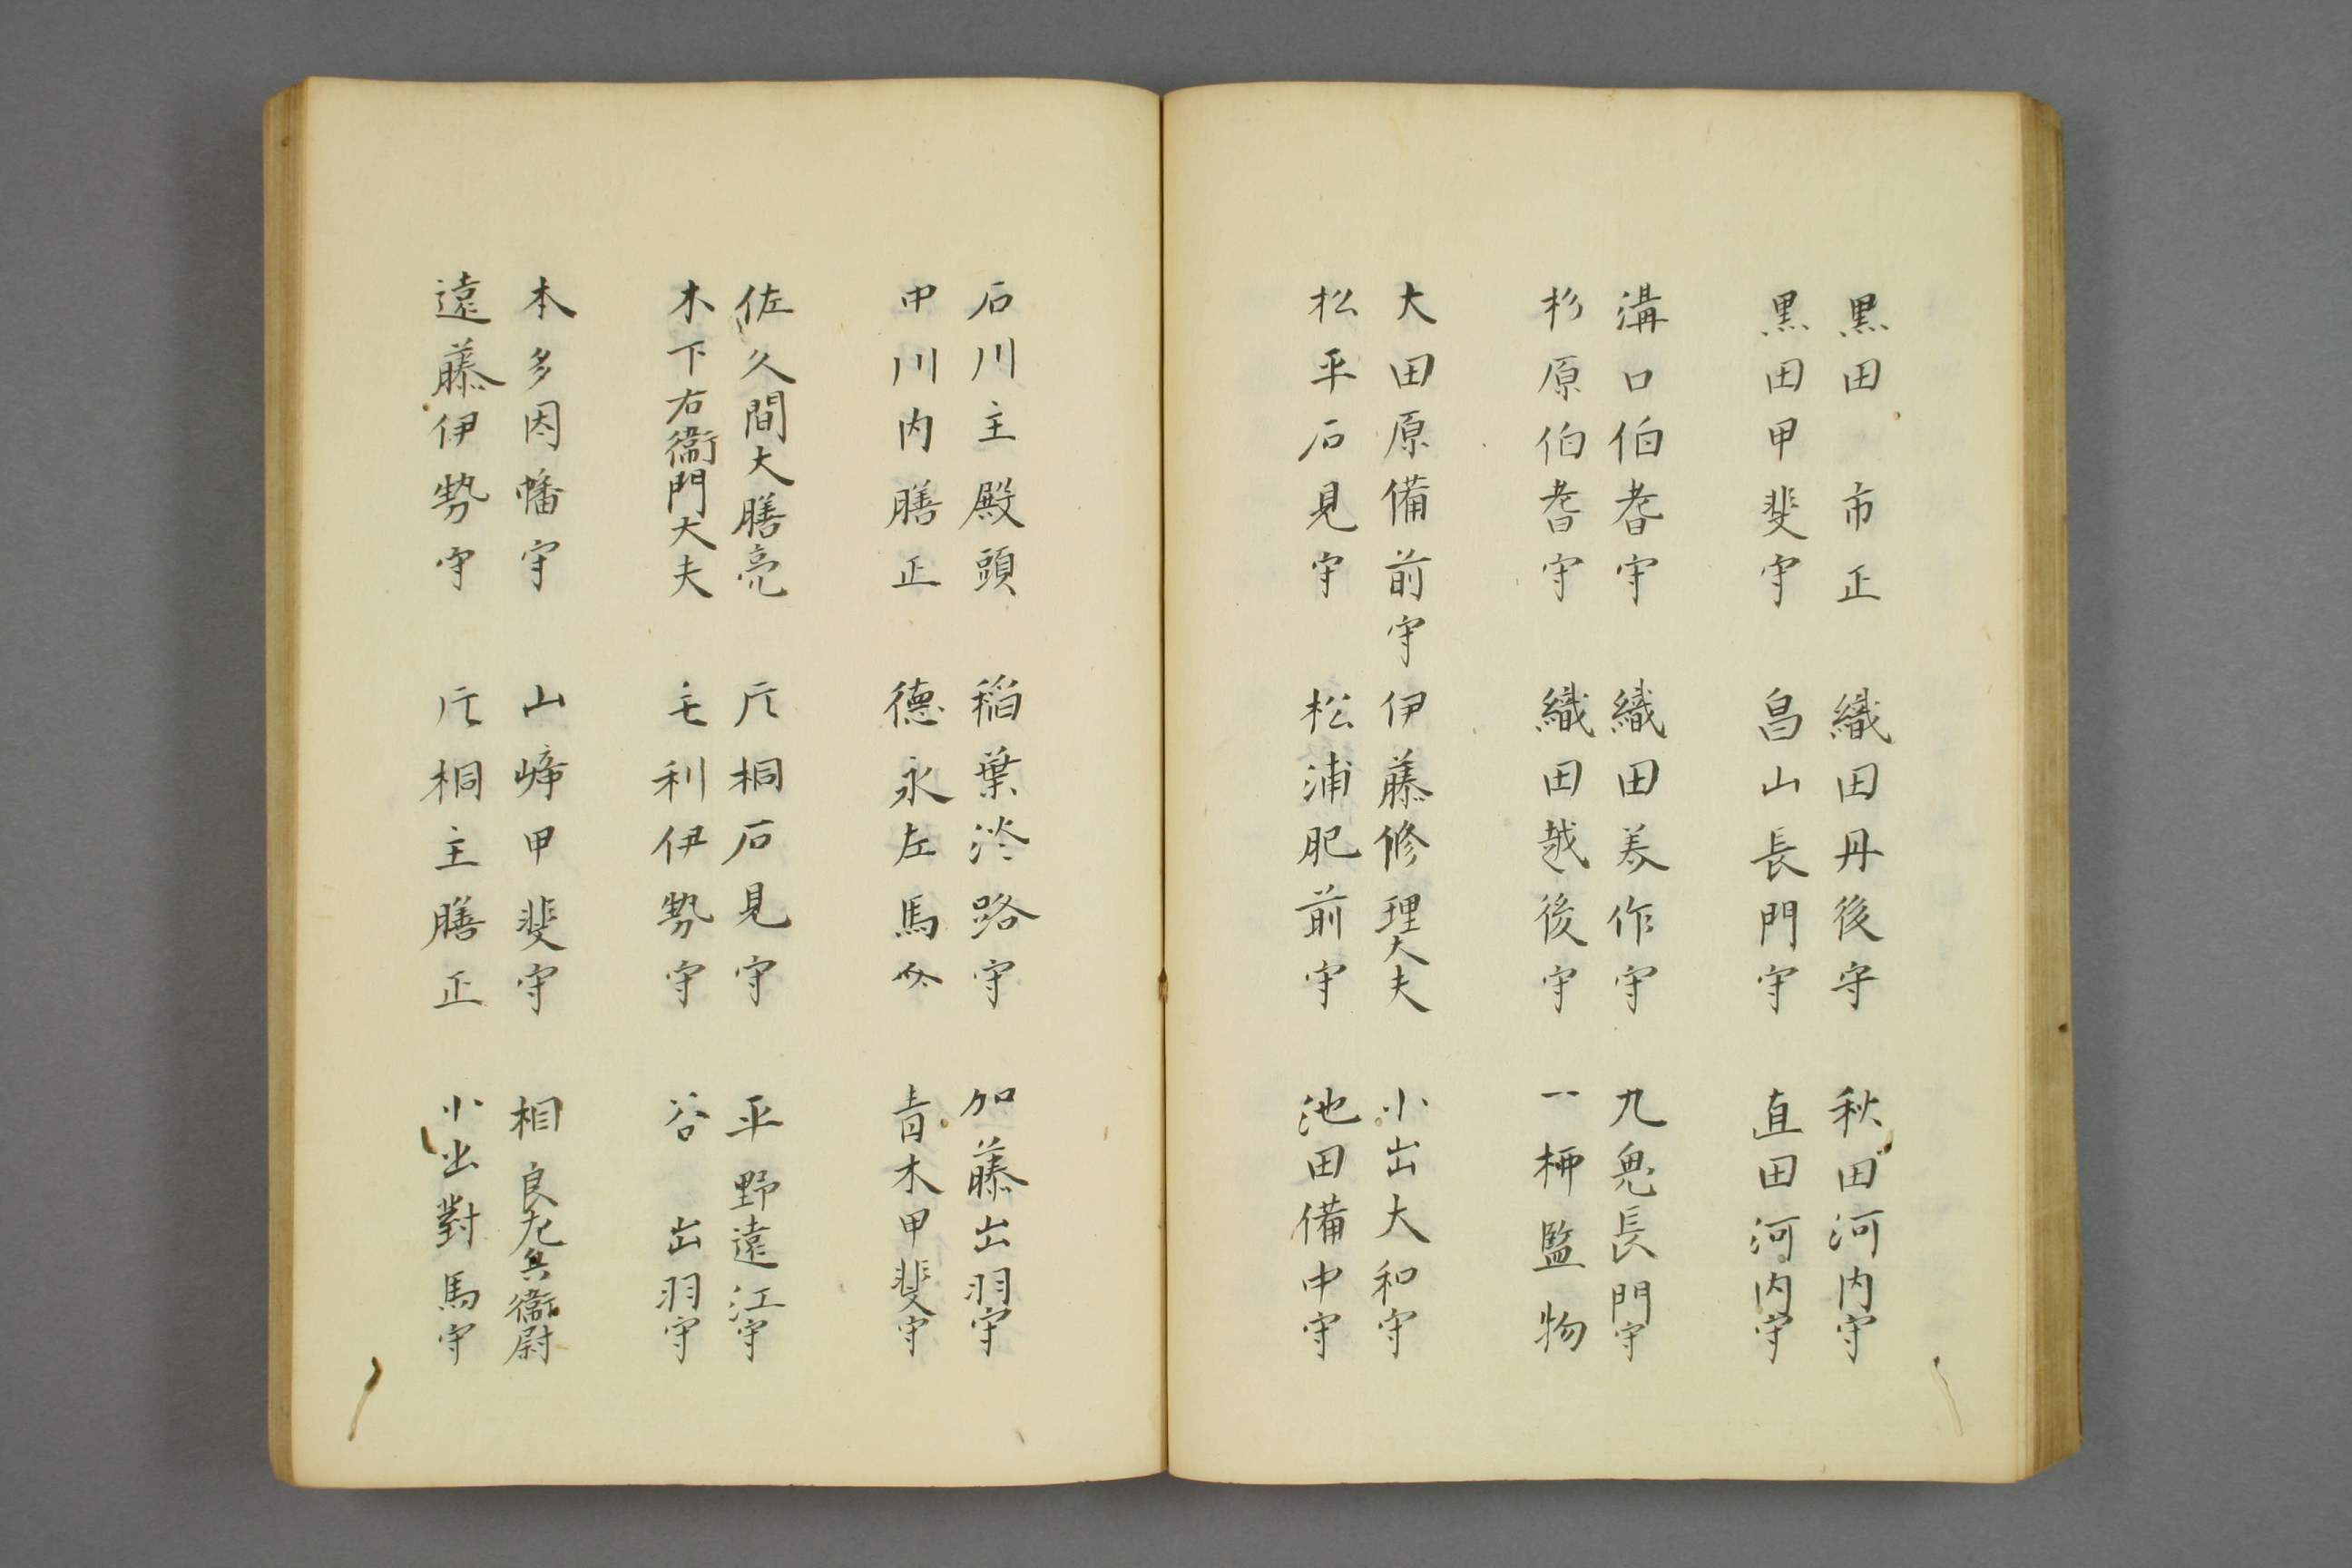 黒田市正 織田丹後守 秋田河内守
黒田甲斐守 昌山長門守 直田河内守
溝口伯耆守 織田美作守 九鬼長門守
杉原伯耆守 織田越後守 一柳監物
大田原備前守 伊藤修理大夫 小出大和守
松平石見守 松浦肥前守 池田備中守
石川主殿頭 稲葉淡路守 加藤出羽守
中川内膳正 德永左馬介 青木甲斐守
佐久間大膳亮 片桐石見守 平野遠江守
木下右衞門大夫 毛利伊勢守 谷出羽守
本多因幡守 山崎甲斐守 相良左兵衞尉
遠藤伊勢守 片桐主膳正 小出對馬守